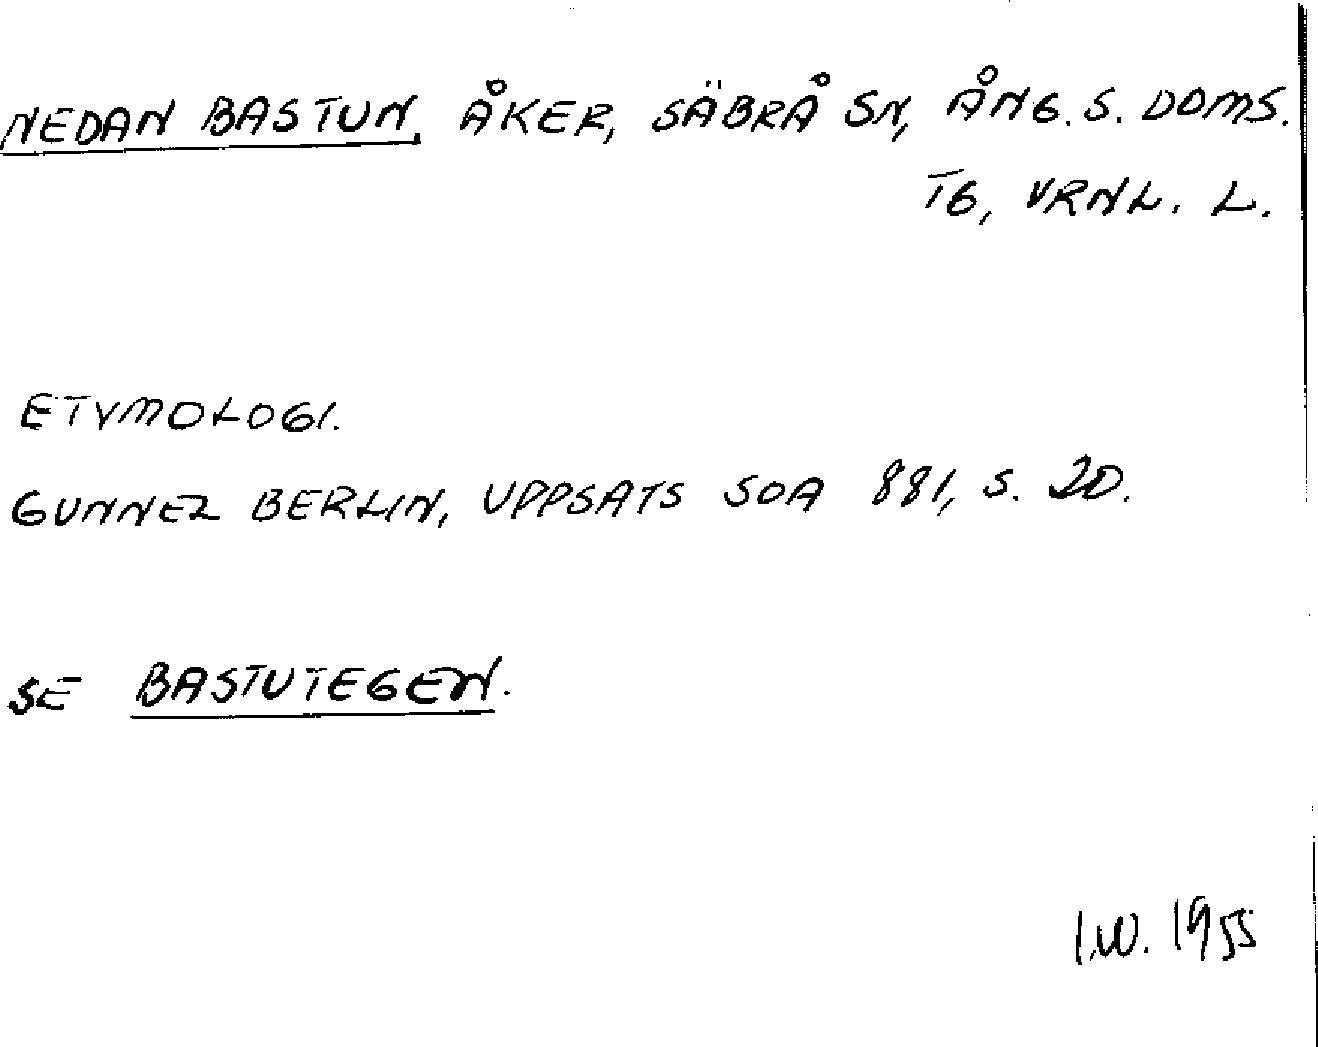 NEDAN BASTUN, ÅKER, SÄBRÅ SN, ÅNG. S. DOMS.
TG, VRNL. L.
ETYMOLOGI.
GUNNEL BERLIN, UPPSATS SOA 881, S. 20.
SE BASTUTEGEN.
I.W. 1955